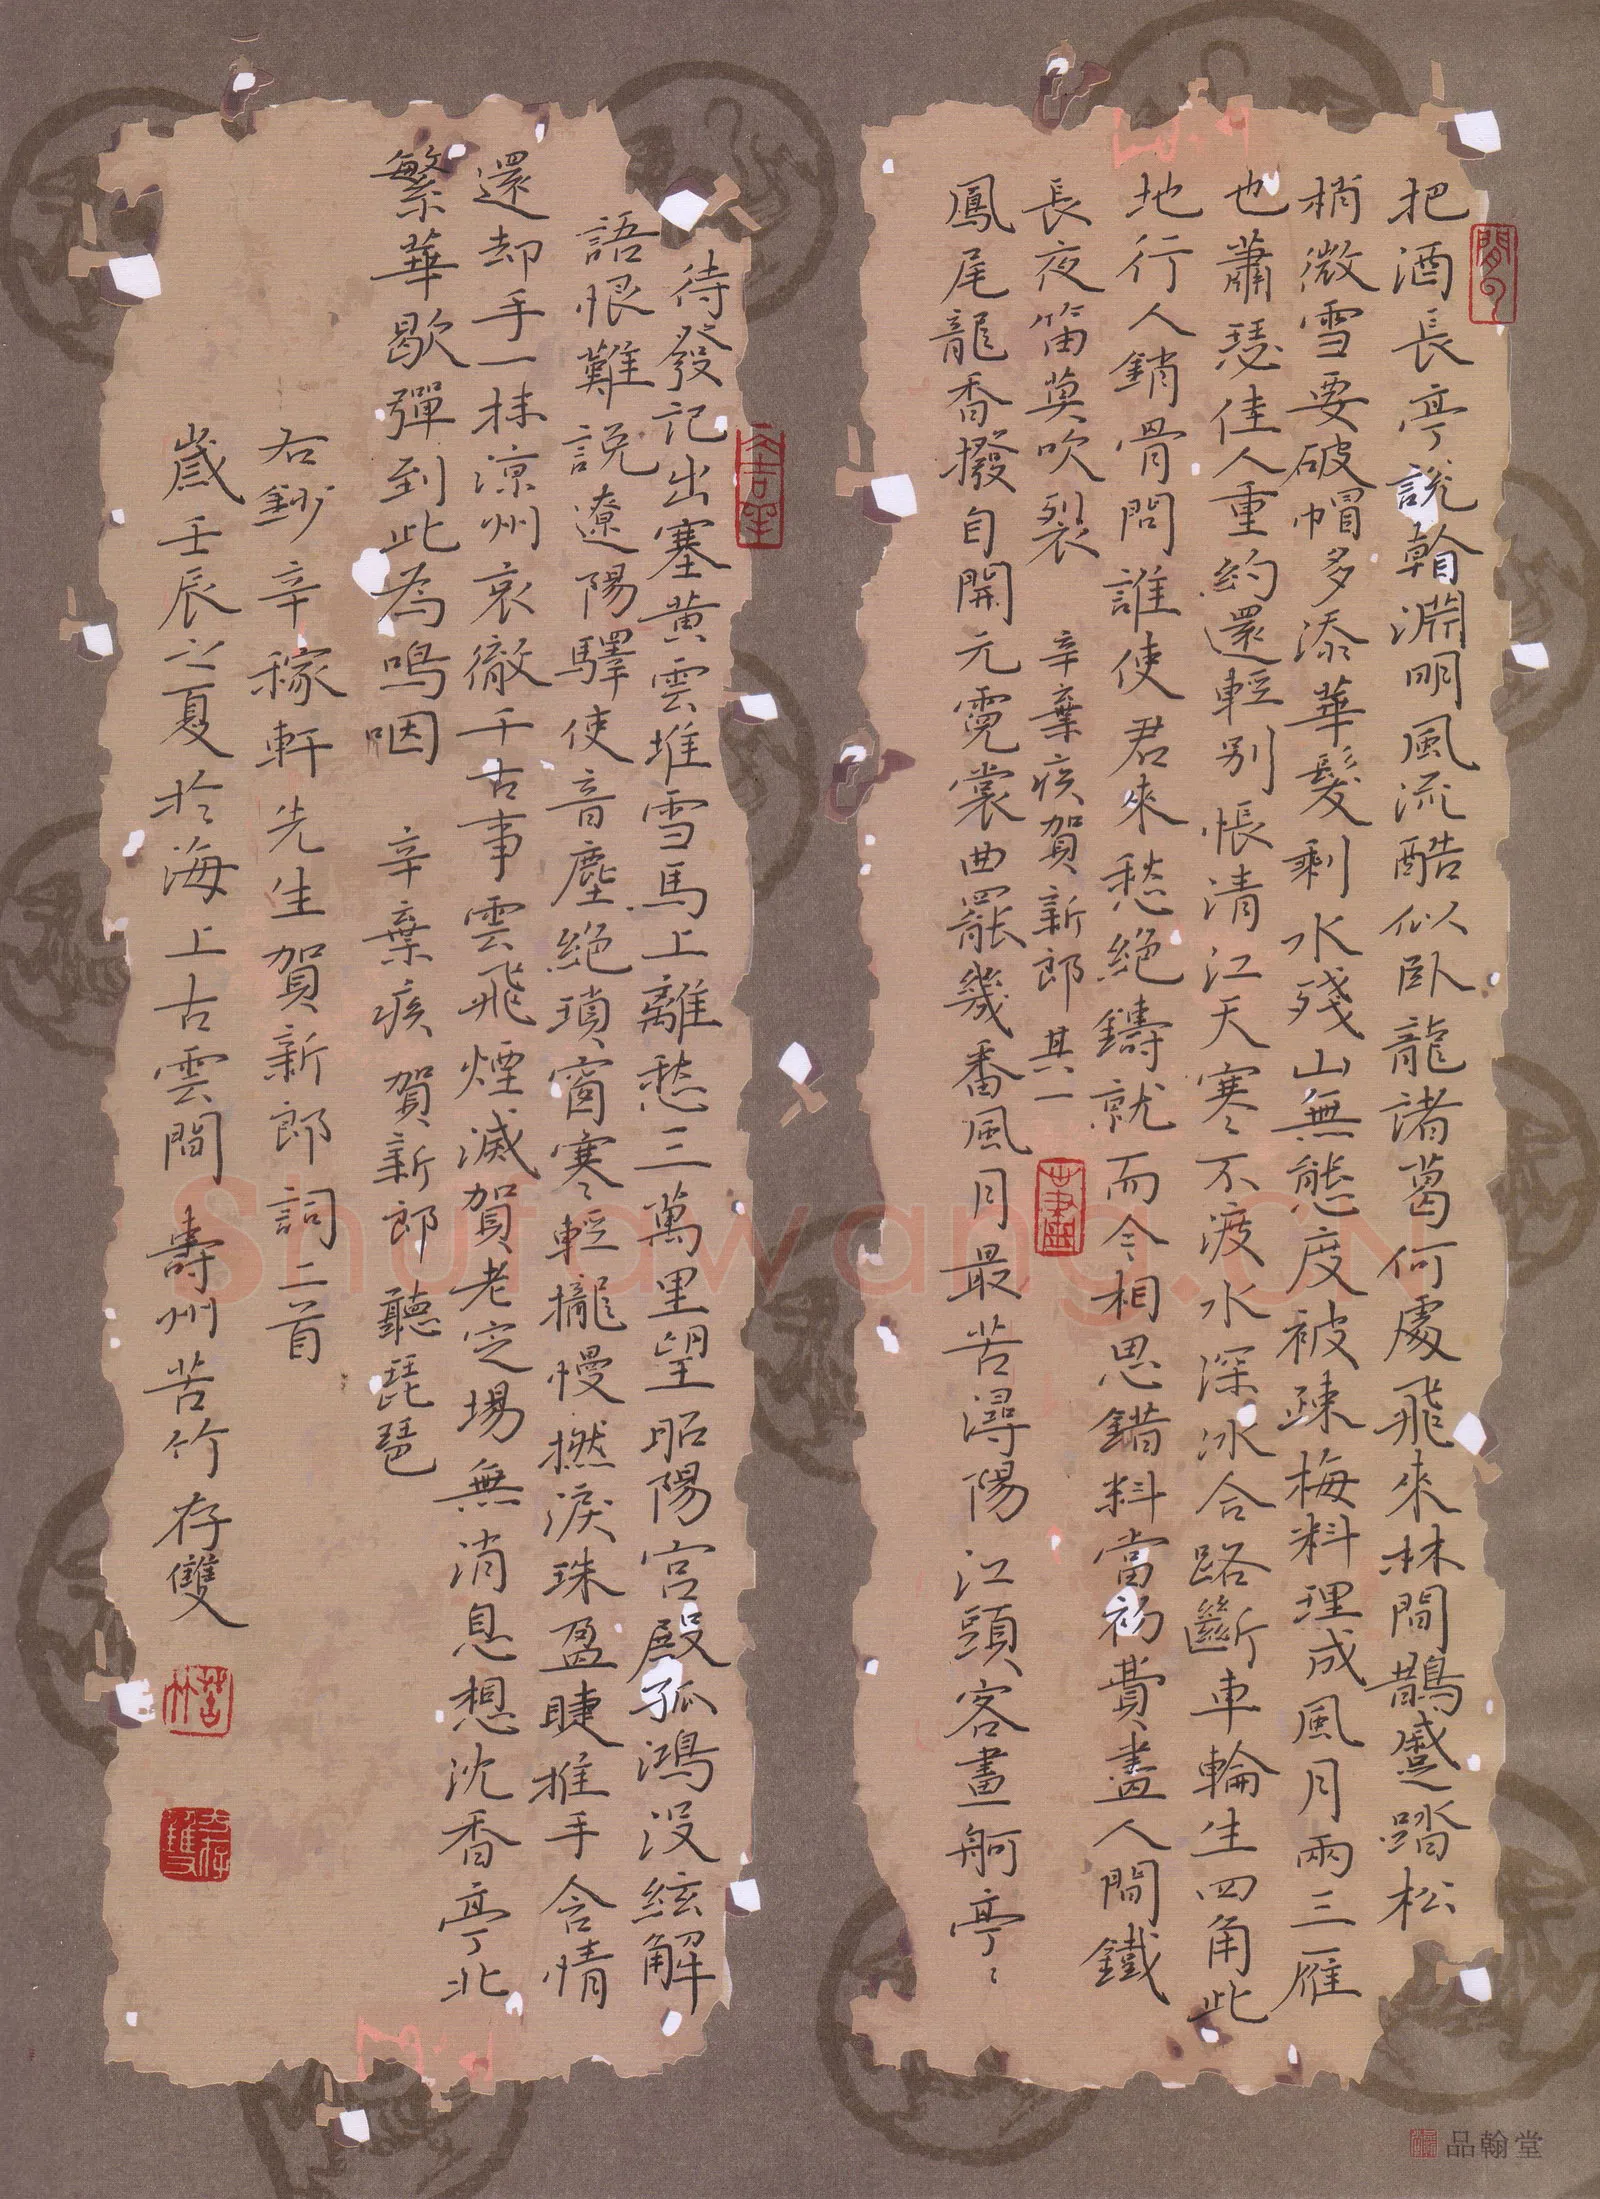 把酒長亭說看淵明風流酷似臥龍諸葛何處飛來林間鵲蹙踏松
梢微雪要破帽多添華髮剩水殘山無態度被疎梅料理成風月兩三雁
也蕭瑟佳人重約還輕別悵清江天寒不渡水深冰合路斷車輪生四角此
地行人銷骨問誰使君來愁絕鑄就而今相思錯料當初費盡人間鐵
長夜笛莫吹裂 辛棄疾賀新郎其一
鳳尾龍香撥自開元霓裳曲罷幾番風月最苦潯陽江頭客畫舸亭〻
待發記出塞黃雲堆雪馬上離愁三萬里望昭陽宮殿孤鴻沒絃解
語恨難說遼陽驛使音塵絕瑣窗寒〻輕攏慢撚淚珠盈睫推手含情
還却手一抹涼州哀徹千古事雲飛煙滅賀老定場無消息想沈香亭北
繁華歇彈到此為嗚咽 辛棄疾賀新郎聽琵琶
右鈔辛稼軒先生賀新郎詞二首
歲壬辰之夏於海上古雲間 壽州苦竹存雙
苦竹
Shufawang.CN
品翰堂